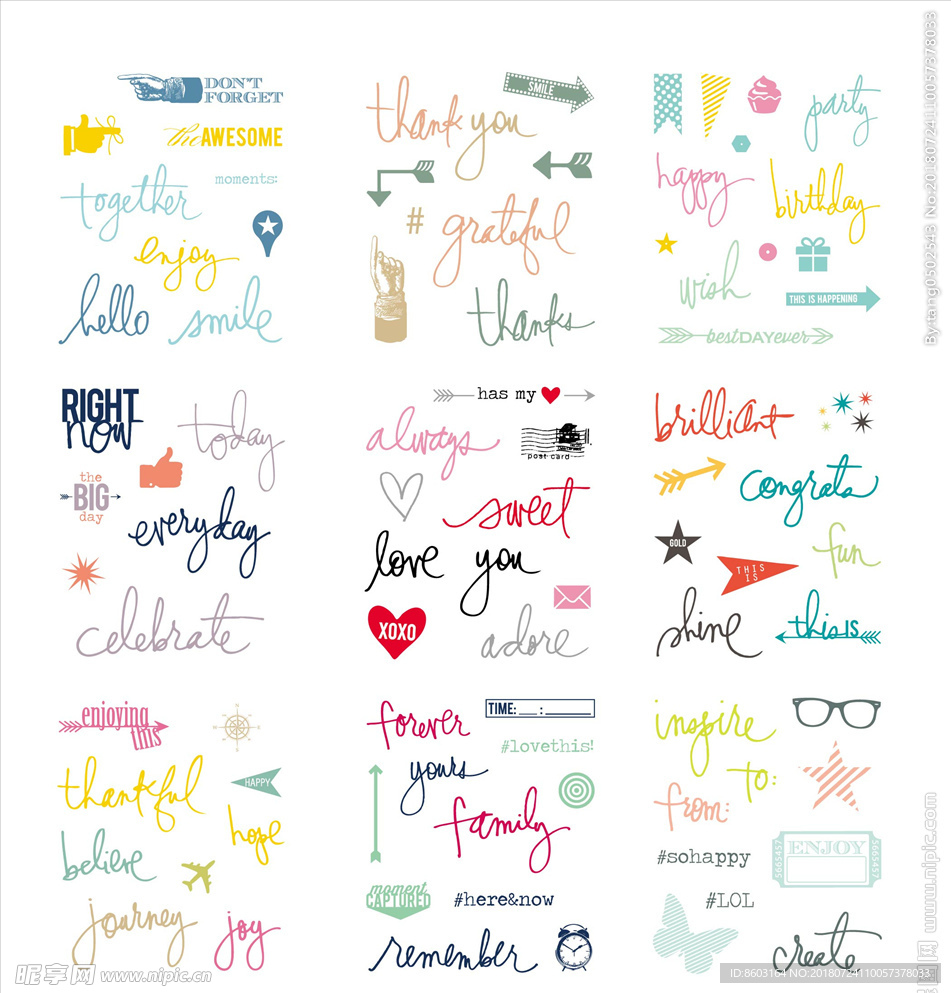 DON'T
FORGET
the AWESOME
together
moments:
enjoy
hello
smile
SMILE
thank you
#
grateful
thanks
party
happy
birthday
wish
THIS IS HAPPENING
bestDAYever
RIGHT
now
today
the
BIG
day
everyday
celebrate
has my
always
post card
sweet
love you
XOXO
adore
brilliant
congrats
GOLD
fun
THIS
IS
shine
this IS
enjoying
this
thankful
HAPPY
hope
believe
journey
joy
forever
TIME: __ : ____
#lovethis!
yours
family
moment
CAPTURED
#here&now
remember
inspire
to:
from:
#sohappy
ENJOY
5665457
5665457
#LOL
create
昵享网 www.nipic.cn
ID:8603164 NO:20180724110057378033
By:tang0502543 No:20180724110057378033
www.nipic.com